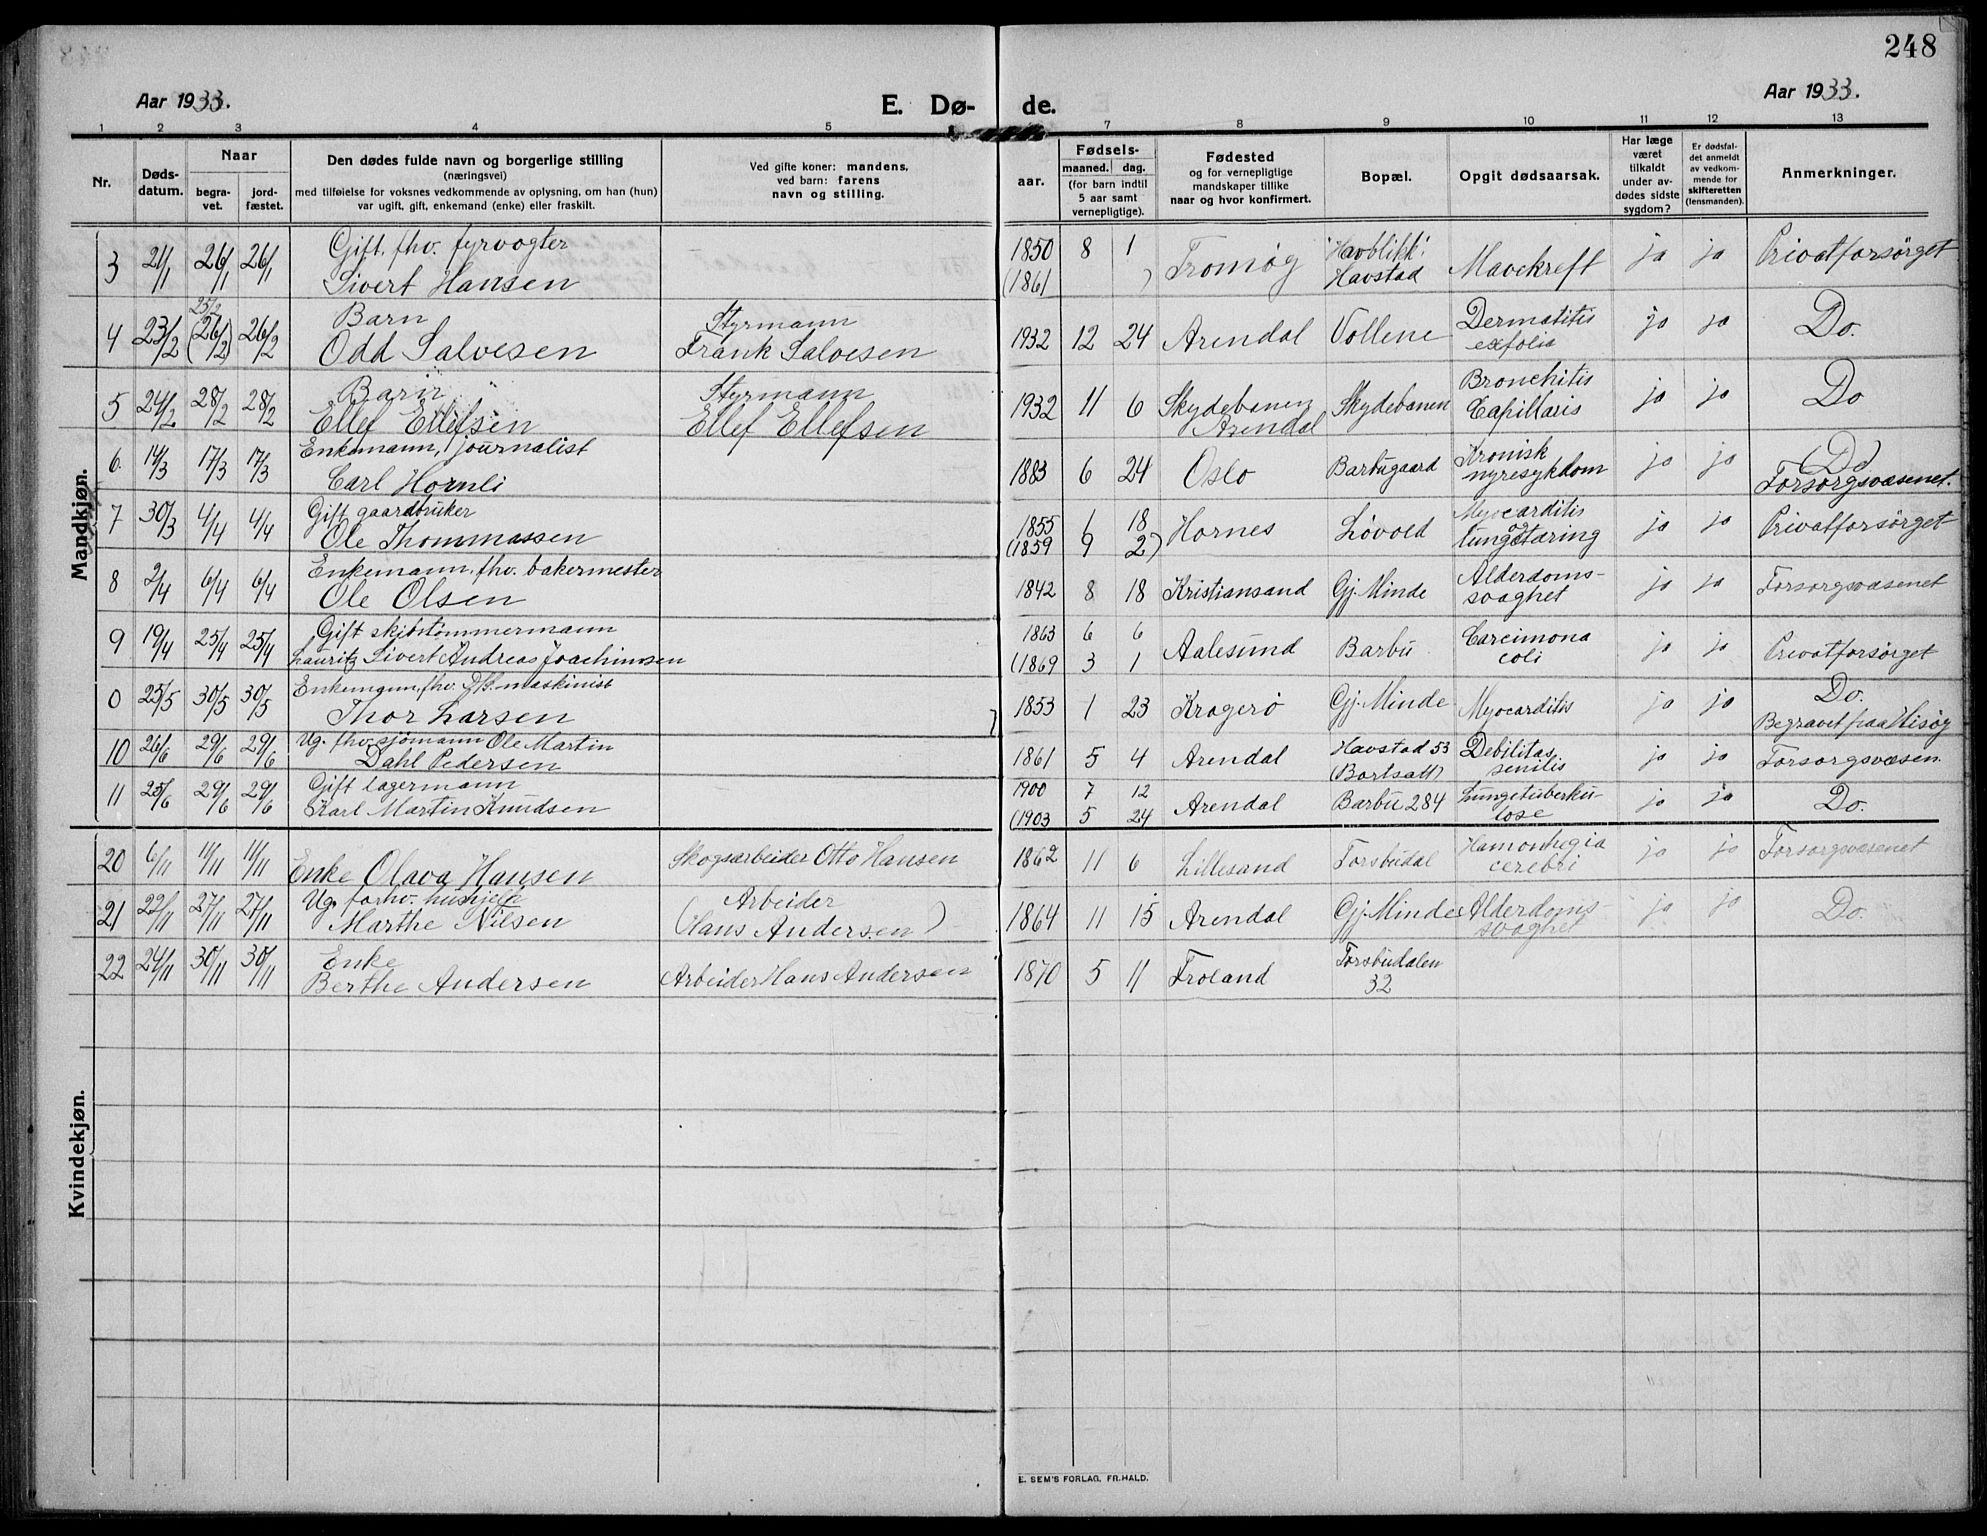 248
Aar 1933.
E. Dø-
de.
Aar 1933.
1 2 3 4 5 7 8 9 10 11 12 13
Nr.
Døds-
datum.
Naar
begra-
vet.
jord-
fæstet.
Den dødes fulde navn og borgerlige stilling
(næringsvei)
med tilføielse for voksnes vedkommende av oplysning, om han (hun)
var ugift, gift, enkemand (enke) eller fraskilt.
Ved gifte koner: mandens,
ved barn: farens
navn og stilling.
aar.
Fødsels-
maaned. dag.
(for barn indtil
5 aar samt
vernepligtige).
Fødested
og for vernepligtige
mandskaper tillike
naar og hvor konfirmert.
Bopæl.
Opgit dødsaarsak.
Har læge
været
tilkaldt
under av-
dødes sidste
sygdom?
Er dødsfal-
det anmeldt
av vedkom-
mende for
skifteretten
(lensmanden).
Anmerkninger.
Mandkjøn.
3 21/1 26/1 26/1 Gift, fhv. fyrvogter
Sivert Hansen
1850 8 1
(1861 )
Tromøy
"Havblikk"
Havstad
Mavekreft ja ja Privatforsørget
4 23/2 25/2
(26/2) 26/2 Barn
Odd Salvesen
Styrmann
Frank Salvesen
1932 12 24 Arendal Vollene
Dermatitis
exfolia
ja ja Do.
5 24/2 28/2 28/2 Barn
Ellef Ellefsen
Styrmann
Ellef Ellefsen
1932 11 6 Skydebanen
Arendal
Skydebanen
Bronchitis
Capillaris
ja ja Do
6. 14/3 17/3 17/3 Enkemann, journalist
Carl Hornli
1883 6 24 Oslo Barbugaard
Kronisk
nyresykdom
ja ja (Do)
Forsorgsvæsenet.
7 30/3 4/4 4/4 Gift gaardbruker
Ole Thommassen
1855 1 18
(1859 9 2)
Hornes Løvold
Myocarditis
og
lungetæring
ja ja Privatforsørget
8 2/4 6/4 6/4 Enkemann, fhv. bakermester
Ole Olsen
1842 8 18 Kristiansand Gj. Minde
Alderdoms-
svaghet
ja ja Forsorgsvæsenet
9 19/4 25/4 25/4 Gift skibstømmermann
Lauritz Sivert Andreas Joachimsen
1863 6 6
(1869 3 1
Aalesund Barbu
Carcimona
coli
ja ja Privatforsørget
0 25/5 30/5 30/5 Enkemann, fhv. D/S. maskinist
Thor Larsen )
1853 1 23 Kragerø Gj. Minde Myocarditis ja ja Do.
Begravet paa Hisøy
10 26/6 29/6 29/6 Ug. fhv. sjømann Ole Martin
Dahl Pedersen
1861 5 4 Arendal Havstad 53
(Bortsatt)
Debilitas
senilis
ja ja Forsorgsvæsen.
11 25/6 29/6 29/6 Gift lagermann
Karl Martin Knudsen
1900 7 12
(1903 5 24
Arendal Barbu 284
Lungetuberku-
lose
ja ja Do.
Kvindekjøn.
20 6/11 11/11 11/11 Enke Olava Hansen Skogsarbeider Otto Hansen
1862 11 6 Lillesand Torsbudal
Hamonhegia
cerebri
ja ja Forsorgsvæsenet
21 22/11 27/11 27/11 Ug. forhv. hushjelp
Marthe Nilsen
Arbeider
(Hans Andersen)
1864 11 15 Arendal Gj. Minde
Alderdoms-
svaghet
ja ja Do.
22 24/11 30/11 30/11 Enke
Berthe Andersen
Arbeider Hans Andersen
1870 5 11 Froland
Torsbudalen
32
E. SEM'S FORLAG, FR.HALD.